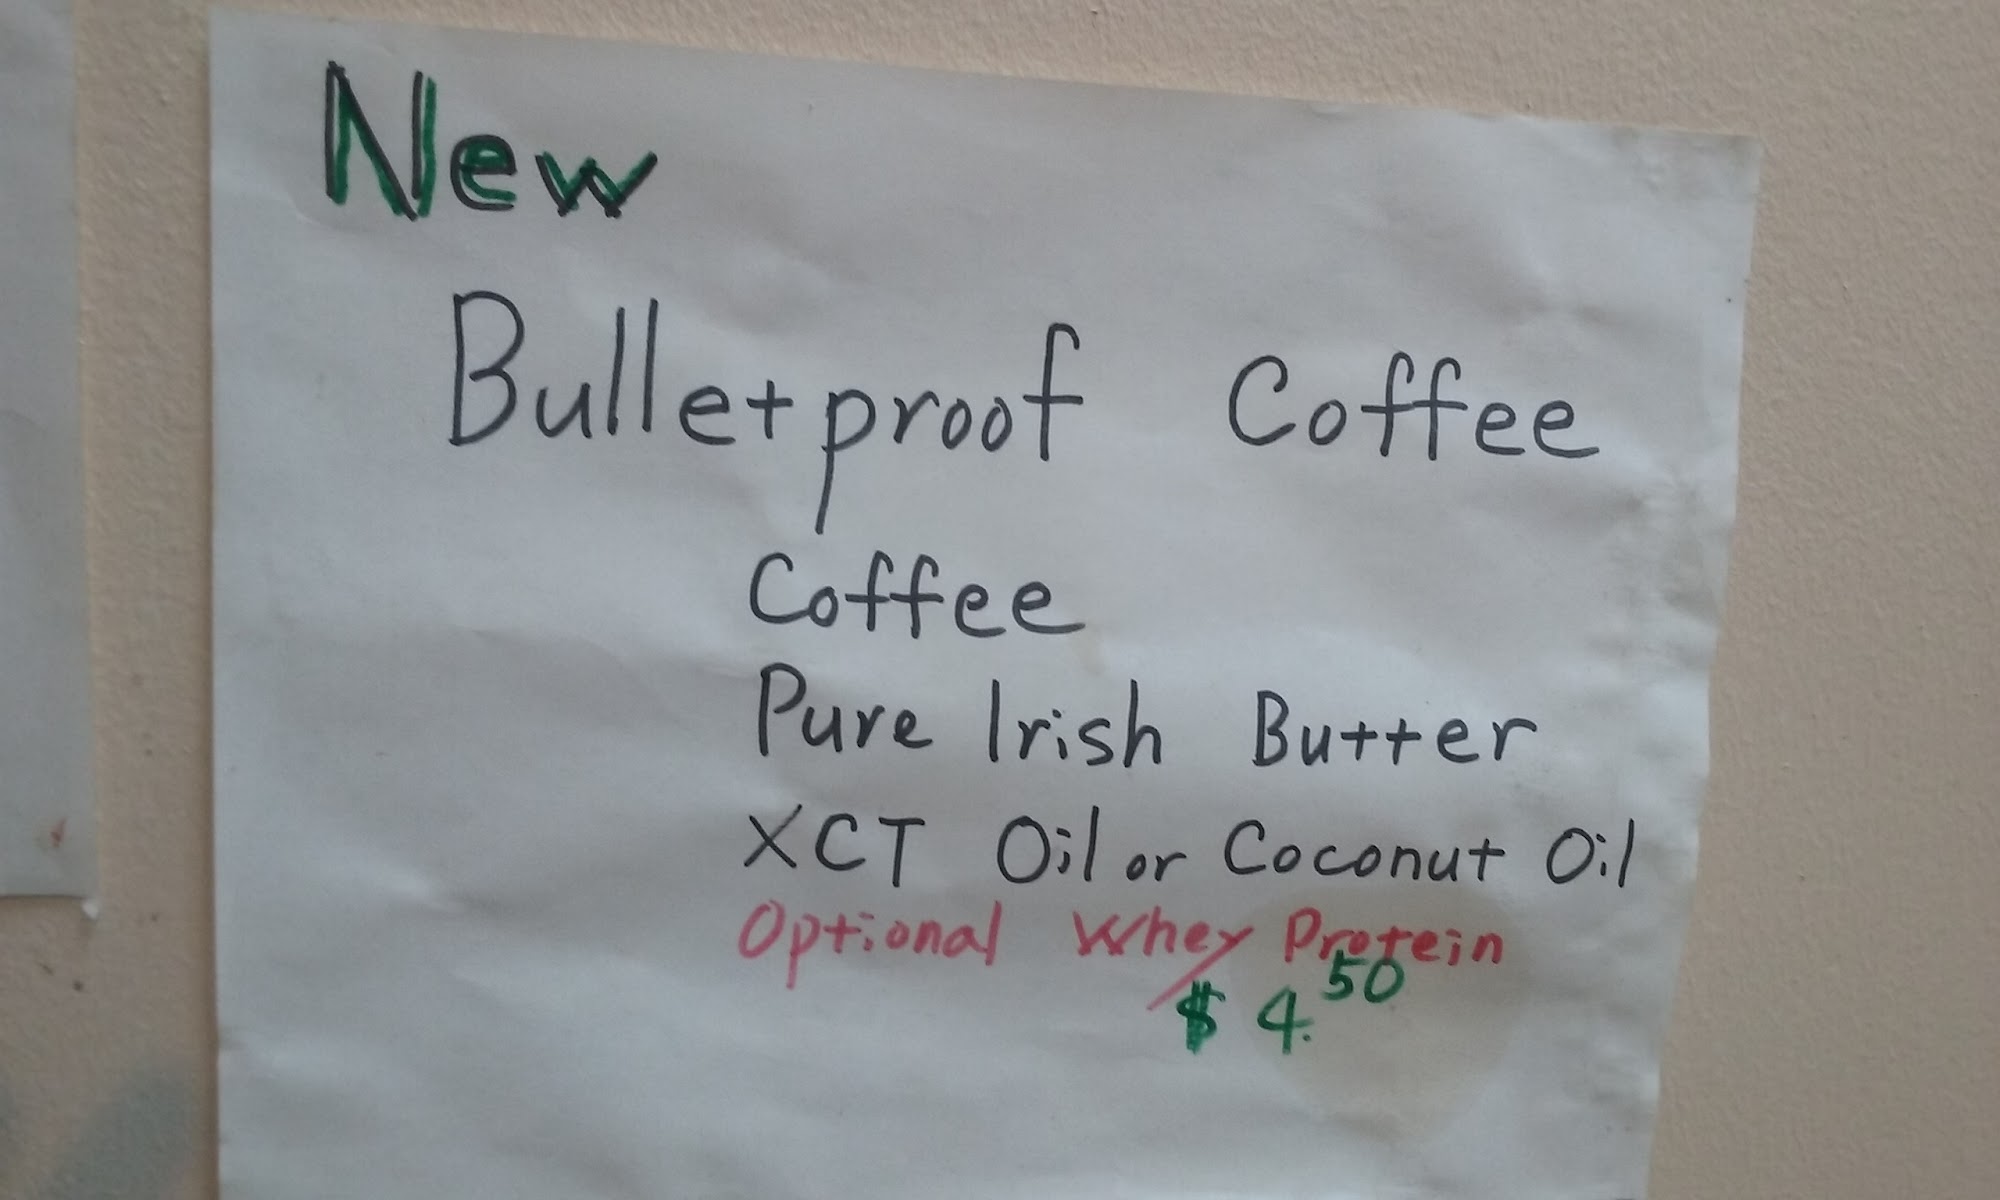 New
Bulletproof Coffee
Coffee
Pure Irish Butter
XCT Oil or Coconut Oil
Optional Whey Protein
$4.50